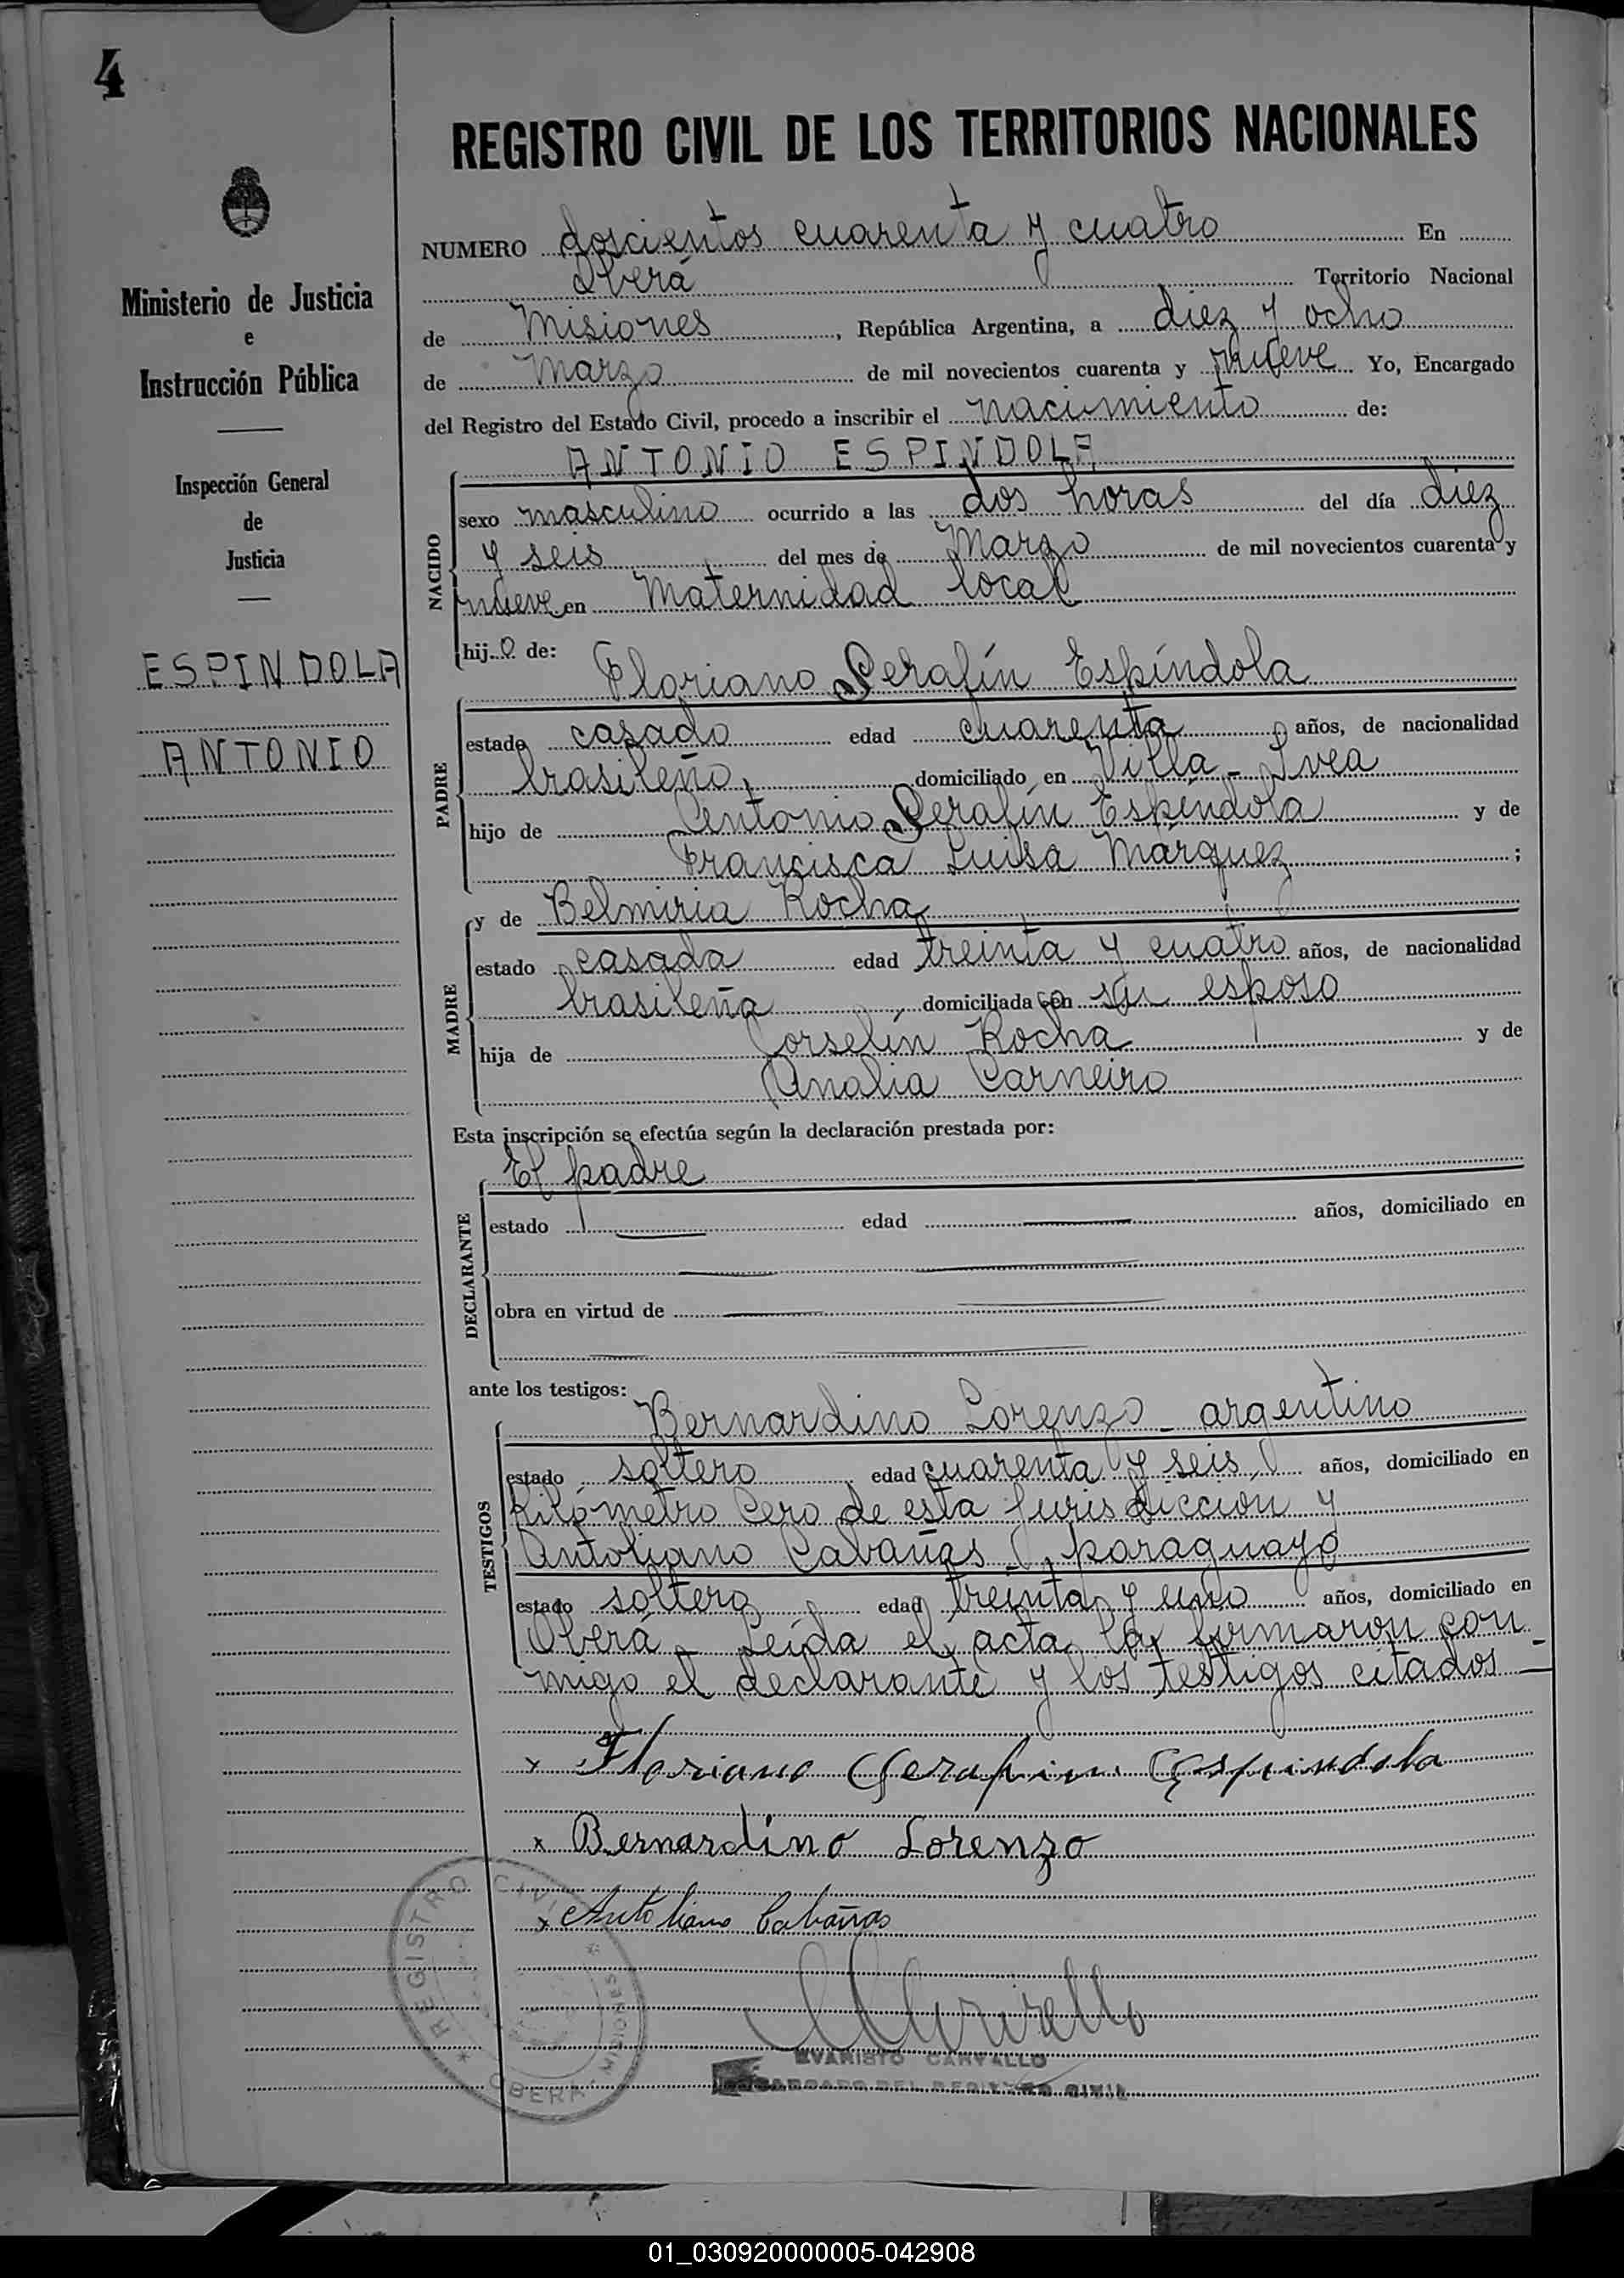 4
REGISTRO CIVIL DE LOS TERRITORIOS NACIONALES
Ministerio de Justicia
e
Instrucción Pública
Inspección General
de
Justicia
ESPINDOLA
ANTONIO
NUMERO doscientos cuarenta y cuatro En
Oberá Territorio Nacional
de Misiones, República Argentina, a diez y ocho
de Marzo de mil novecientos cuarenta y nueve Yo, Encargado
del Registro del Estado Civil, procedo a inscribir el nacimiento de:
ANTONIO ESPINDOLA
NACIDO
sexo masculino ocurrido a las dos horas del día diez
y seis del mes de Marzo de mil novecientos cuarenta y
nueve en Maternidad local
hijo de:
Floriano Serafín Espíndola
PADRE
estado casado edad cuarenta años, de nacionalidad
brasileño, domiciliado en Villa - Svea
hijo de Antonio Serafín Espíndola y de
Francisca Luisa Márquez ;
MADRE
y de Belmiria Rocha
estado casada edad treinta y cuatro años, de nacionalidad
brasileña domiciliada con su esposo
hija de Jorselín Rocha y de
Analia Carneiro
Esta inscripción se efectúa según la declaración prestada por:
El padre
DECLARANTE
estado edad años, domiciliado en
obra en virtud de
ante los testigos:
Bernardino Lorenzo - argentino
TESTIGOS
estado soltero edad cuarenta y seis, años, domiciliado en
Kilómetro Cero de esta Jurisdicción y
Antoliano Cabañas, paraguayo
estado soltero edad treinta y uno años, domiciliado en
Oberá - Leída el acta la firmaron con
migo el declarante y los testigos citados -
x Floriano Serafim Espindola
x Bernardino Lorenzo
x Antoliano Cabañas
EVARISTO CARVALLO
ENCARGADO DEL REGISTRO CIVIL
* REGISTRO CIVIL *
OBERA - MISIONES
01_030920000005-042908